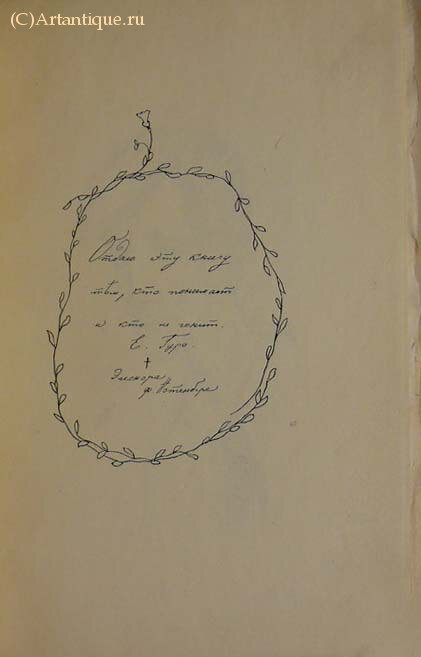 (C)Artantique.ru
Отдаю эту книгу
тѣм, кто понимает
и кто не гонит.
Е. Гуро.
Элеонора
ф. Нотенберг